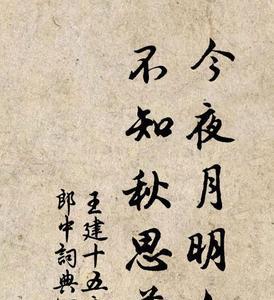 今夜月明
不知秋思
王建十五
郎中詞典